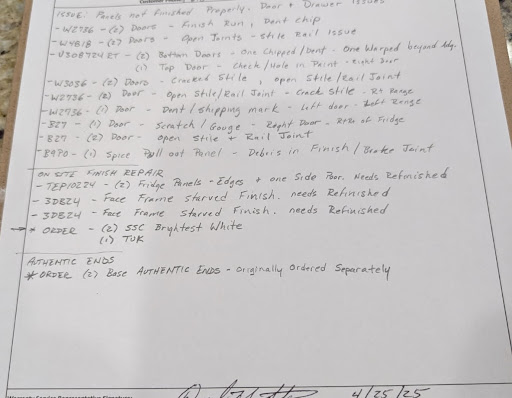 ISSUE: Panels not Finished Properly. Door + Drawer Issues
- W2736 - (2) Doors - Finish Run, Dent chip
- W4818 - (2) Doors - Open Joints - stile Rail Issue
(2) Bottom Doors - One Chipped/Dent - One Warped beyond Adj.
(1) Top Door - Check/Hole in Paint - Right Door
- W3036 - (2) Doors - Cracked Stile, open Stile/Rail Joint
- W2736 - (2) Door - Open Stile/Rail Joint - Crack Stile - Rt Range
- W2736 - (1) Door - Dent/Shipping mark - Left door - Left Range
- B27 - (1) Door - Scratch/Gouge - Right Door - of Fridge
- B27 - (2) Door - Open Stile + Rail Joint
- B9PO - (1) Spice Pull out Panel - Debris in Finish/Broke Joint
ON SITE FINISH REPAIR
- TEP10224 - (2) Fridge Panels - Edges + one Side Poor. Needs Refinished
- 3DB24 - Face Frame Starved Finish. needs Refinished
- 3DB24 - Face Frame Starved Finish. needs Refinished
* ORDER - (2) SSC Brightest White
(1) TUK
AUTHENTIC ENDS
* ORDER (2) Base AUTHENTIC ENDS - originally Ordered Separately
4/25/25